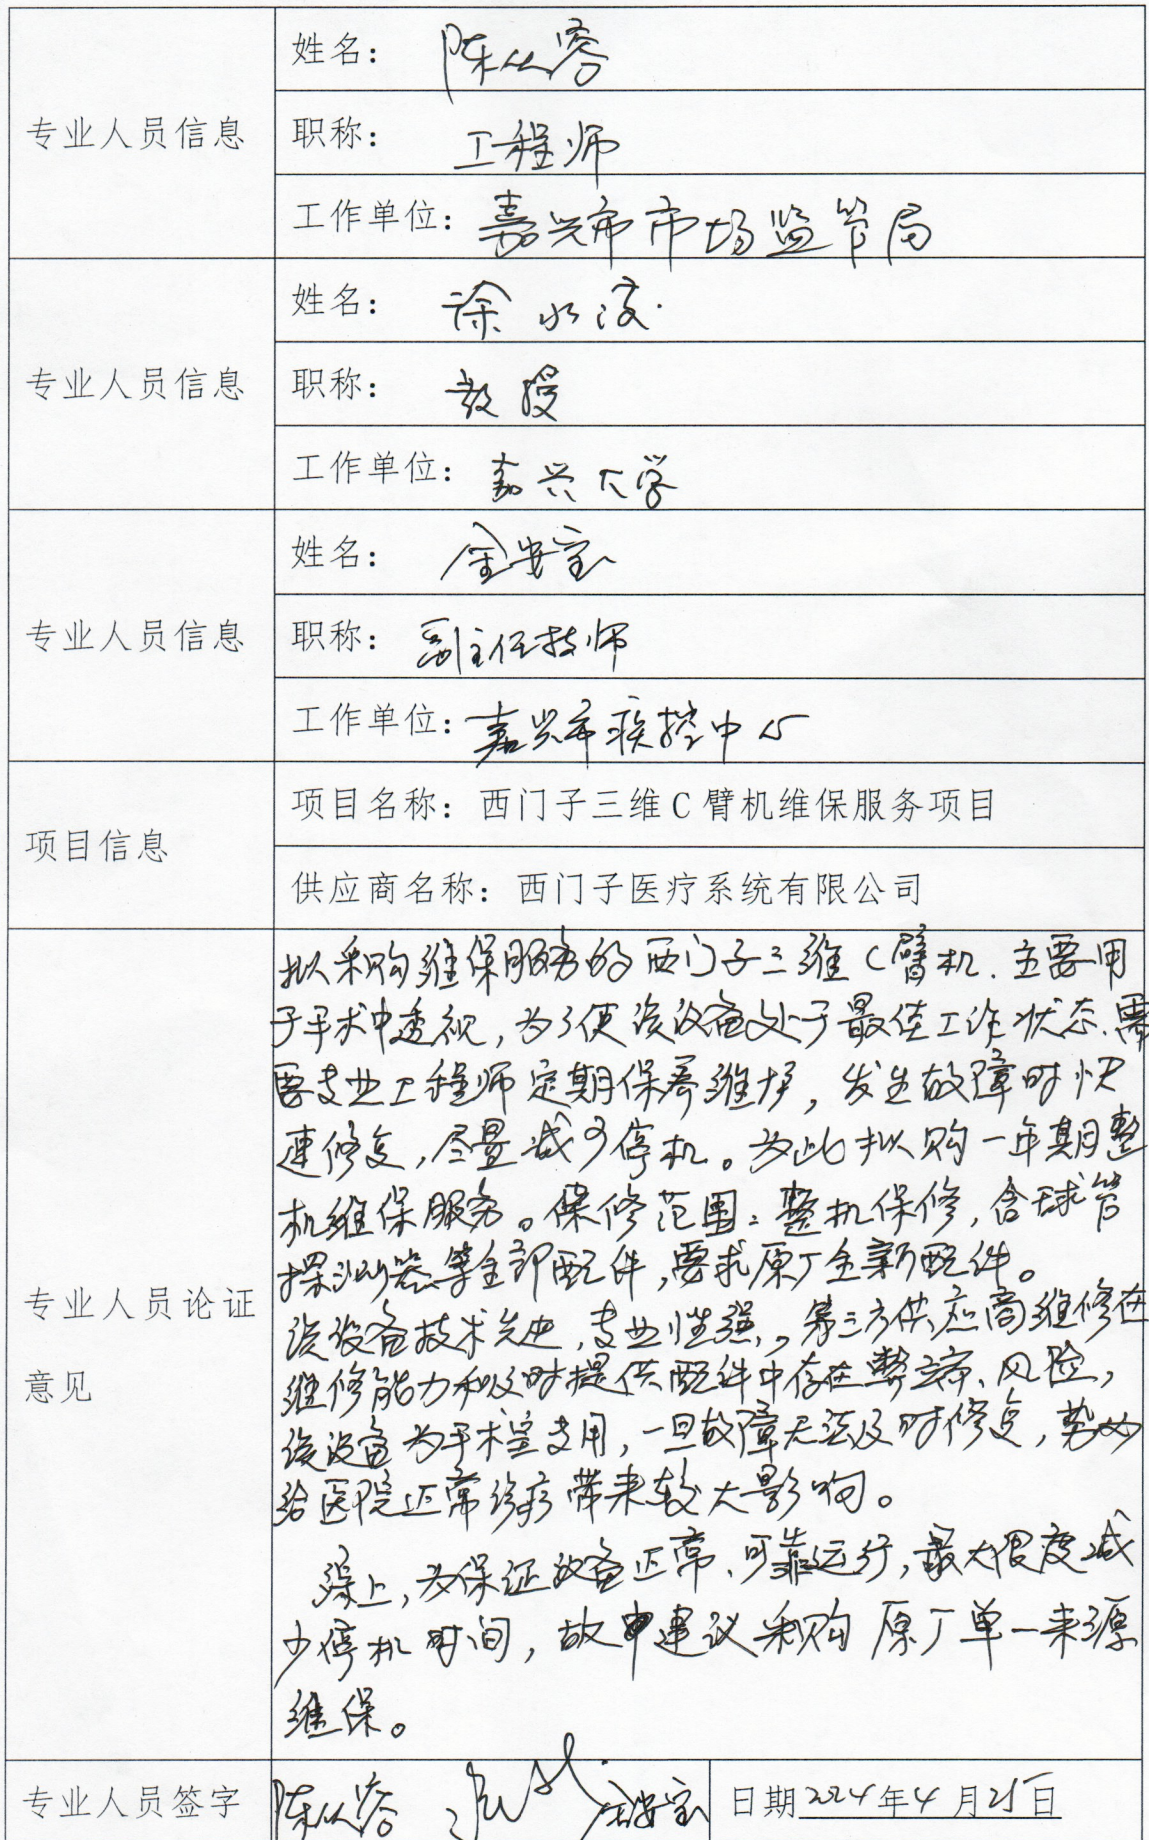 姓名： 陈从容
专业人员信息
职称： 工程师
工作单位：嘉兴市市场监管局
姓名： 涂水波
专业人员信息
职称： 教授
工作单位：嘉兴大学
姓名： 金安宝
专业人员信息
职称： 副主任技师
工作单位：嘉兴市疾控中心
项目信息
项目名称：西门子三维C臂机维保服务项目
供应商名称：西门子医疗系统有限公司
专业人员论证
意见
拟采购维保服务的西门子三维C臂机、主要用
于手术中透视，为了使该设备处于最佳工作状态、需
要专业工程师定期保养维护，发生故障时快
速修复，尽量减少停机。为此拟购一年期整
机维保服务。保修范围：整机保修，含球管
探测器等全部配件，要求原厂全新配件。
该设备技术先进，专业性强。第三方供应商维修在
维修能力和及时提供配件中存在弊端、风险，
该设备为手术室专用，一旦故障无法及时修复，势必
给医院正常诊疗带来较大影响。
综上，为保证设备正常、可靠运行，最大限度减
少停机时间，故建议采购原厂单一来源
维保。
专业人员签字 陈从容 金安宝 日期2024年4月25日